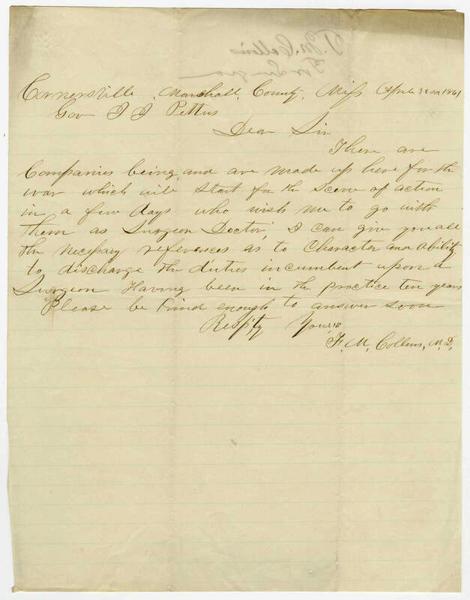 Cornersville, Marshall, County, Miss April 22nd 1861
Gov J J Pettus
Dear Sir
There are
Companies being and are made up here for the
war which will start for the scene of action
in a few days who wish me to go with
them as Surgeon Doctor, I can give you all
the necessary references as to Character and Ability
to discharge the duties incumbent upon a
Surgeon Having been in the practice ten years
Please be kind enough to answer soon
Respty Yours
F. M. Collins, M.D.